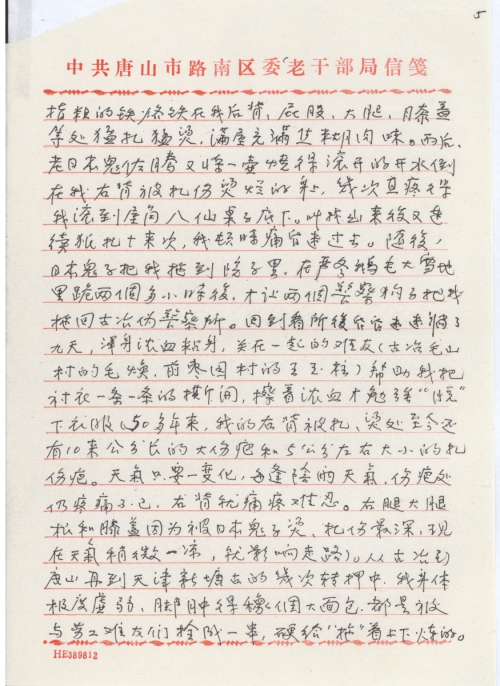 5
中共唐山市路南区委老干部局信笺
指粗的铁疼铁在我后背、屁股、大腿、膝盖
等处猛扎猛烫，满屋充满焦糊肉味。而后，
老日本鬼佐腾又将一壶烧得滚开的开水倒
在我右背被扎伤烫烂的身上，线次真疼得
我滚到屋角八仙桌子底下。叫拽出来後又连
续狐扎十来次，我顿時痛昏迷过去。随後，
日本鬼子把我拖到院子里，在严冬鹅毛大雪地
里跪两個多小時後，才让两個警察狗子把我
拖回古冶伪警察所。回到看所後昏昏迷迷躺了
九天，浑身浓血粘身，关在一起的难友(古冶毛山
村的毛焕，前枣园村的王玉柱)帮助我把
衬衣一条一条的撕下间，擦着浓血才勉强“脱”
下衣服(50多年来，我的右背被扎、烫处至今还
有10来公分长的大伤疤和5公分左右大小的扎
伤疤。天氣只要一变化，每逢陰的天氣，伤疤处
仍疼痛不已，右背犹痛疼难忍。右腿大腿
松和膝盖因为被日本鬼子烫、扎伤最深，现
在天氣稍微一凉，就影响走路)。从古冶到
唐山再到天津新塘古的线次转押中，我身体
极度虚弱、脚肿得像個大面包，都是被
与劳工难友们拴成一串，硬给“拖”着上下火车的。
HE389812